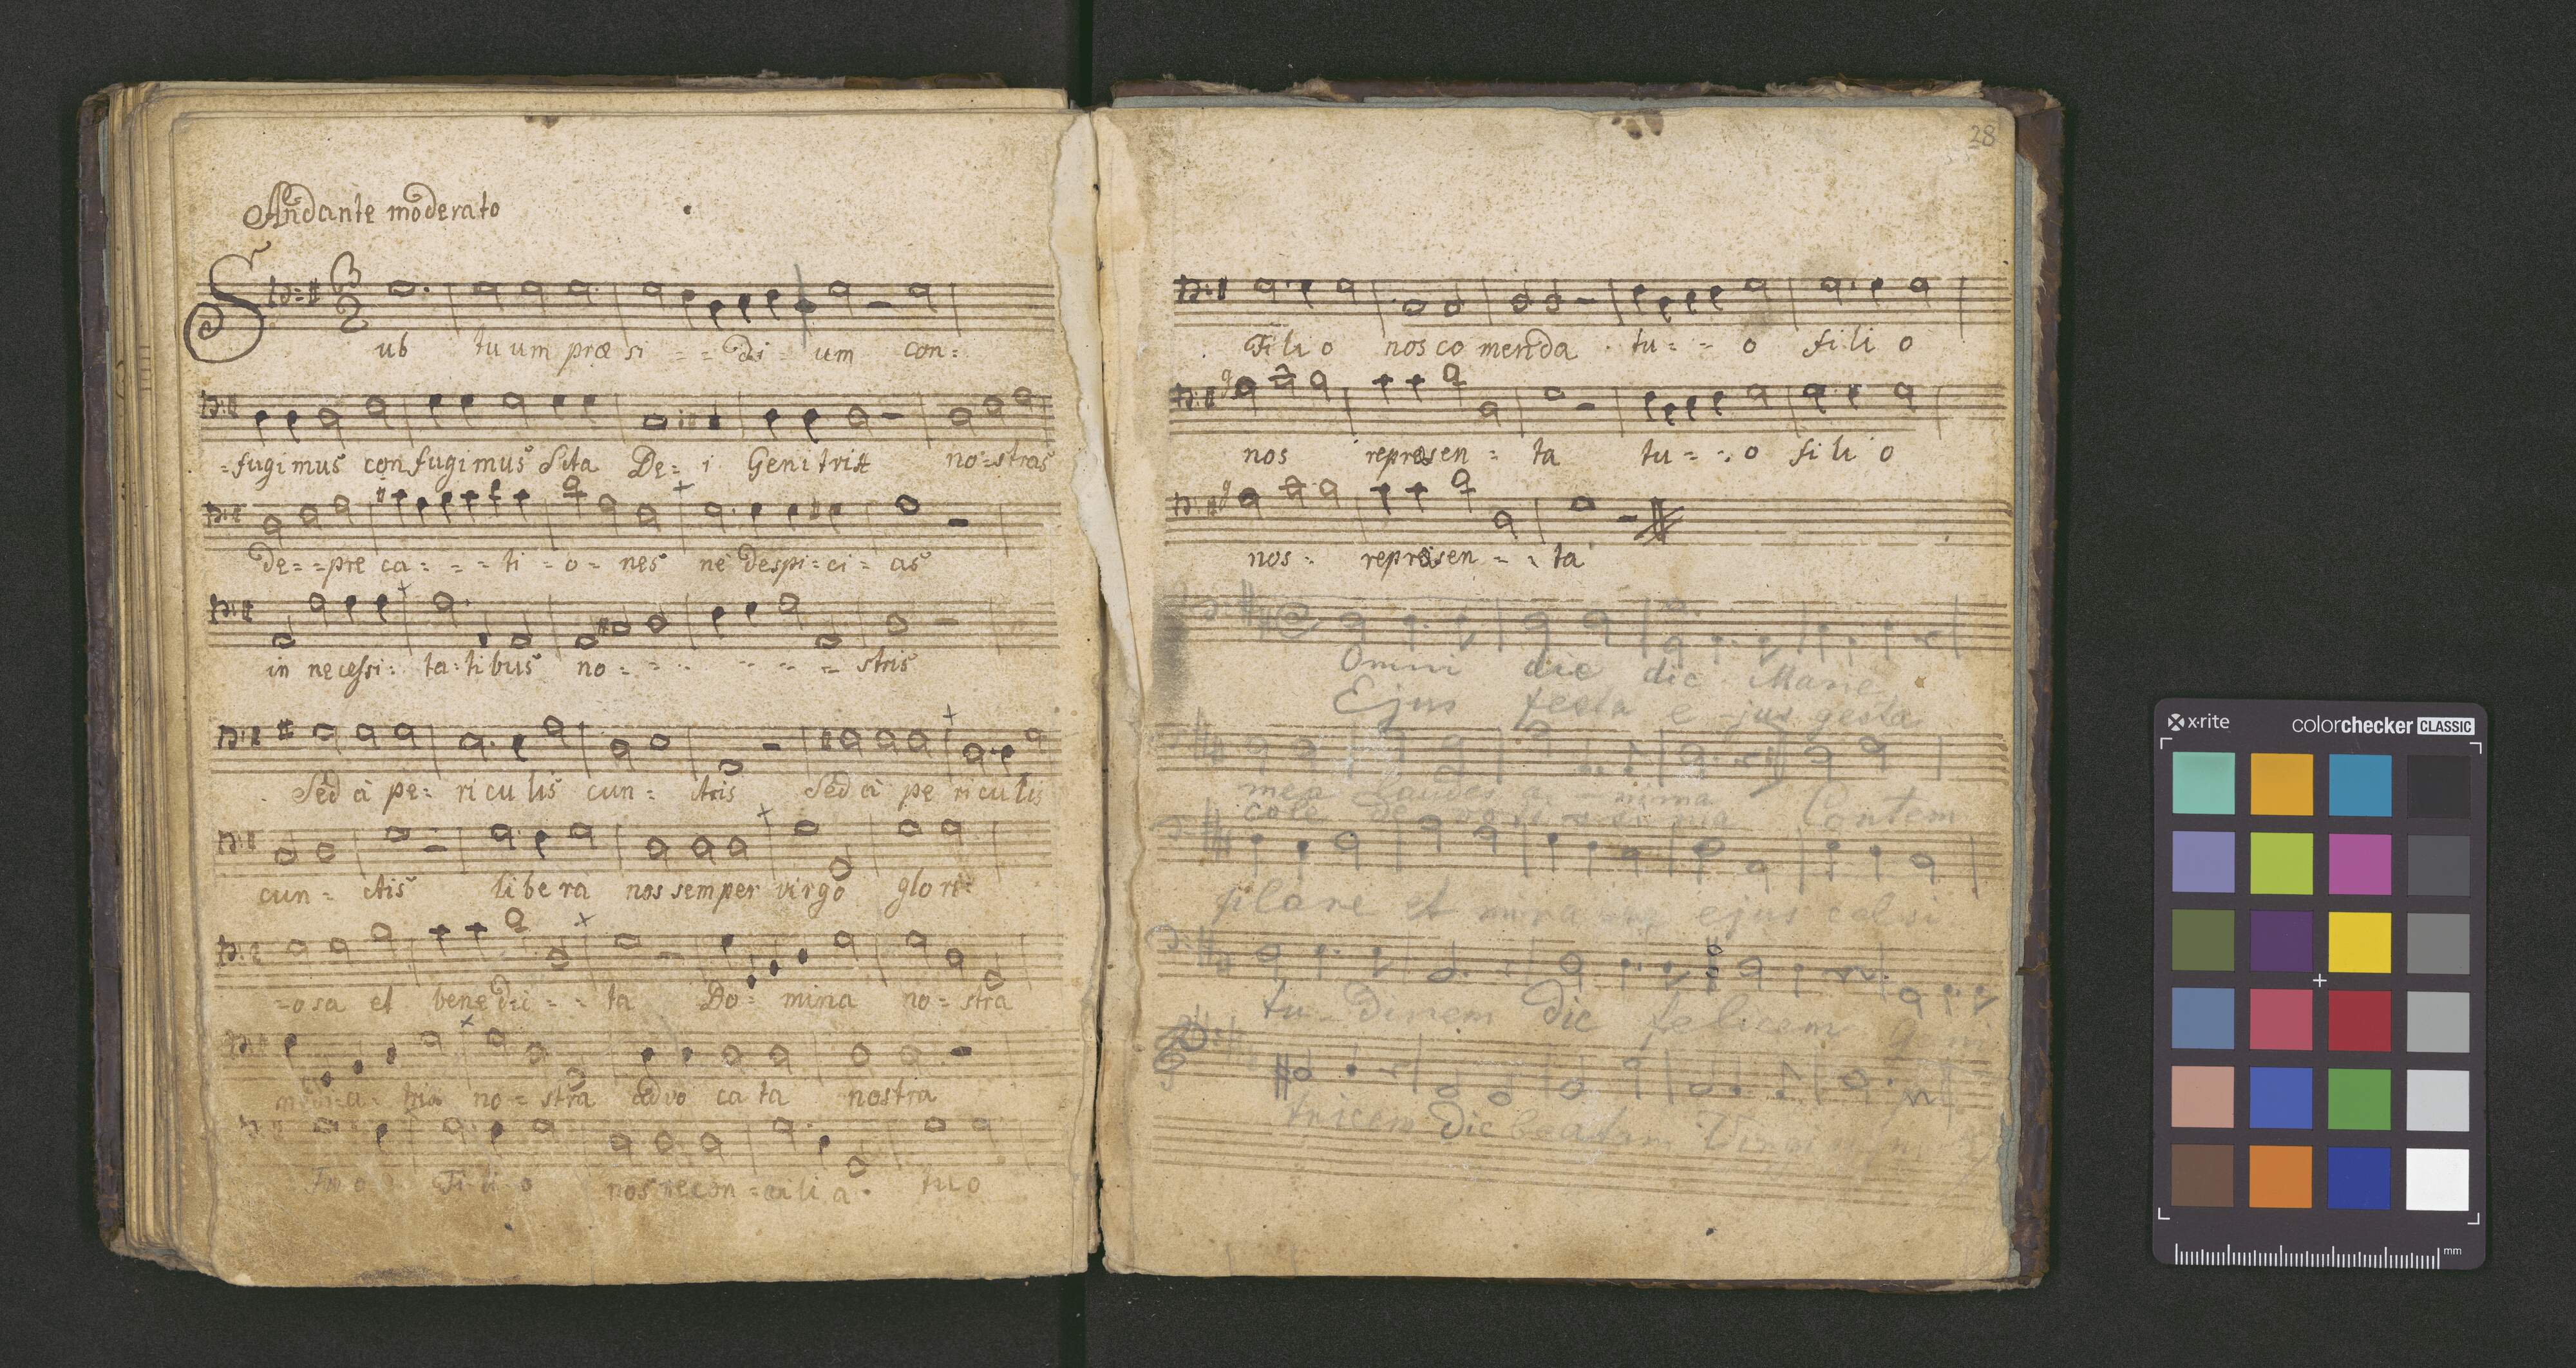 Andante moderato
Sub tuum præ si = = di = um con:
=fugimus confugimus Scta De= i Genitrix no=stras
de= =pre ca= = = ti = o = nes ne despi=ci= as
in necessi: ta=tibus no= = = = = = stris
Sed à pe: ri cu lis cun= ctis Sed à pe ri cu lis
cun= ctis libera nos semper virgo glori=
=osa et bene di = = ta Do= mina no= stra
tria no= stra advo cata nostra
Tuo Fi li o nos recon=cilia tuo
28
Filio nos co menda tu= = o filio
nos repræsen = ta tu= = o filio
nos= repræsen = = ta
Omni die dic Mariæ
Ejus festa e jus gesta
mea laudes a - nima
cole Contem
filare et ejus celsi
tu-dinem Dic felicem
tricem Dic beatam
x·rite colorchecker CLASSIC
mm